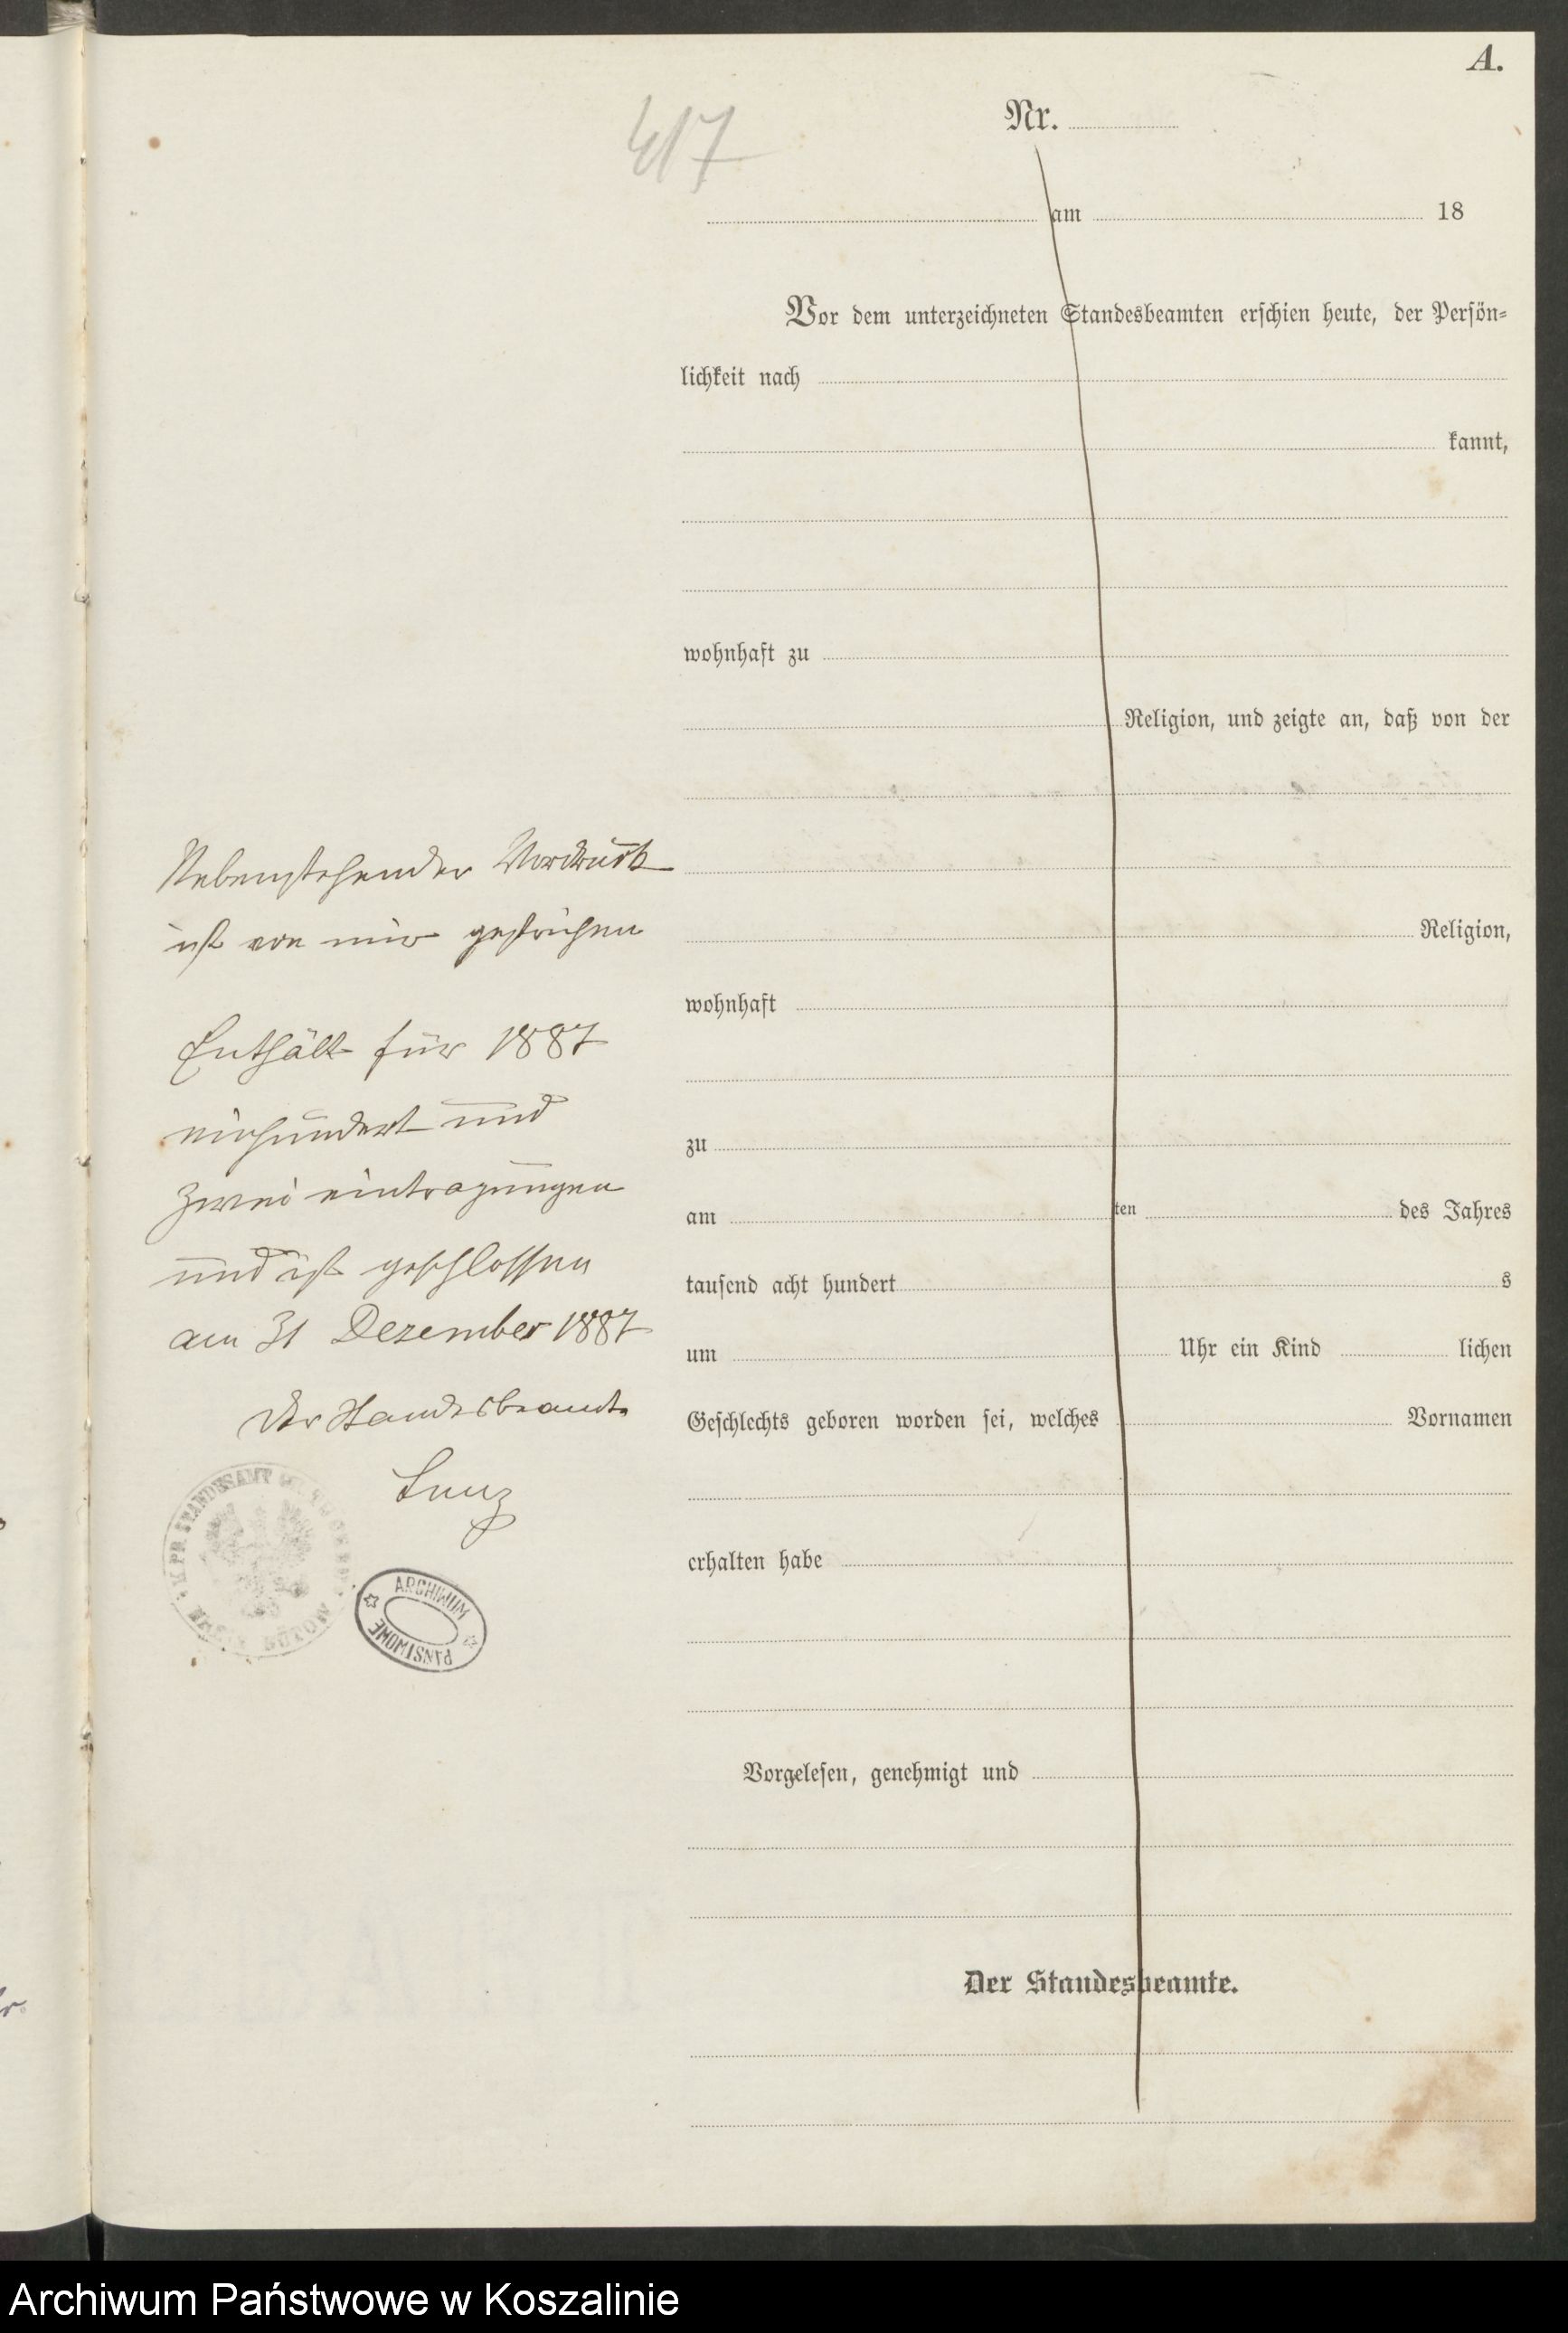 A.
417
Nr.
am 18
Vor dem unterzeichneten Standesbeamten erschien heute, der Persön-
lichkeit nach
kannt,
wohnhaft zu
Religion, und zeigte an, daß von der
Religion,
wohnhaft
zu
am ten des Jahres
tausend acht hundert s
um Uhr ein Kind lichen
Geschlechts geboren worden sei, welches Vornamen
erhalten habe
Vorgelesen, genehmigt und
Der Standesbeamte.
Nebenstehender Vordruck
ist von mir gestrichen
Enthält für 1887
einhundert und
zwei eintragungen
und ist geschlossen
am 31 Dezember 1887
Der Standesbeamte
KPR STANDESAMT
BÜTOW
ARCHIWUM
PAŃSTWOWE
Archiwum Państwowe w Koszalinie